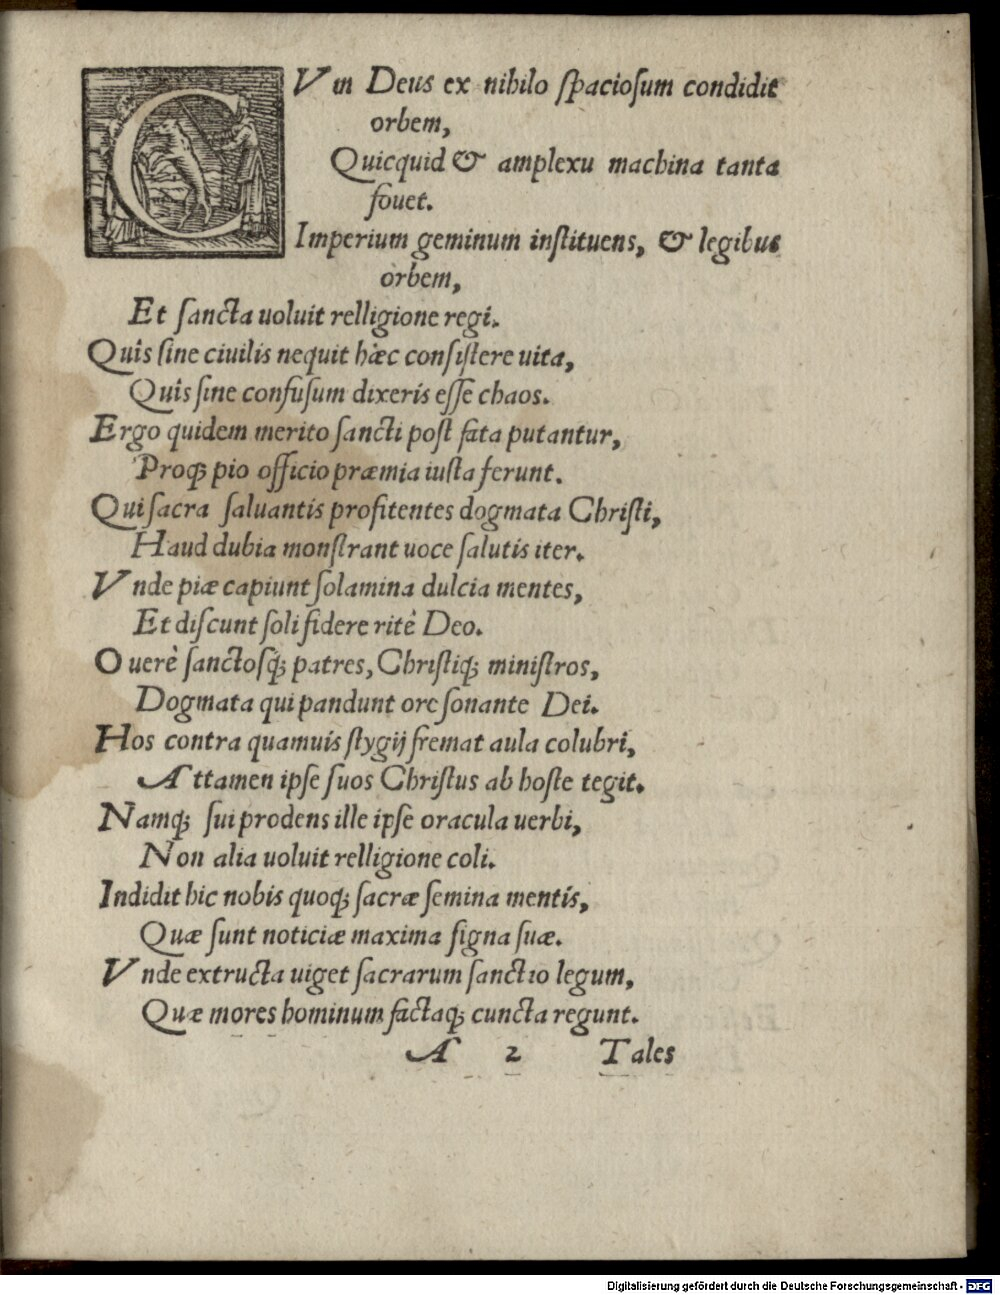 CVm Deus ex nihilo ſpacioſum condidit
orbem,
Quicquid & amplexu machina tanta
fouet.
Imperium geminum inſtituens, & legibus
orbem,
Et ſancta uoluit relligione regi.
Quîs ſine ciuilis nequit hæc conſiſtere uita,
Quîs ſine confuſum dixeris eſſe chaos.
Ergo quidem merito ſancti poſt fata putantur,
Proq́; pio officio præmia iuſta ferunt.
Qui ſacra ſaluantis profitentes dogmata Chriſti,
Haud dubia monſtrant uoce ſalutis iter.
Vnde piæ capiunt ſolamina dulcia mentes,
Et diſcunt ſoli fidere ritè Deo.
O uerè ſanctosq́; patres, Chriſtiq́; miniſtros,
Dogmata qui pandunt ore ſonante Dei.
Hos contra quamuis ſtygij fremat aula colubri,
Attamen ipſe ſuos Chriſtus ab hoſte tegit.
Namq́; ſui prodens ille ipſe oracula uerbi,
Non alia uoluit relligione coli.
Indidit hic nobis quoq́; ſacræ ſemina mentis,
Quæ ſunt noticiæ maxima ſigna ſuæ.
Vnde extructa uiget ſacrarum ſanctio legum,
Quæ mores hominum factaq́; cuncta regunt.
A 2 Tales
Digitalisierung gefördert durch die Deutsche Forschungsgemeinschaft - DFG